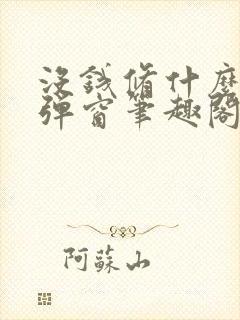 沒錢俢什麼
彈窗筆趣閣
阿蘇山